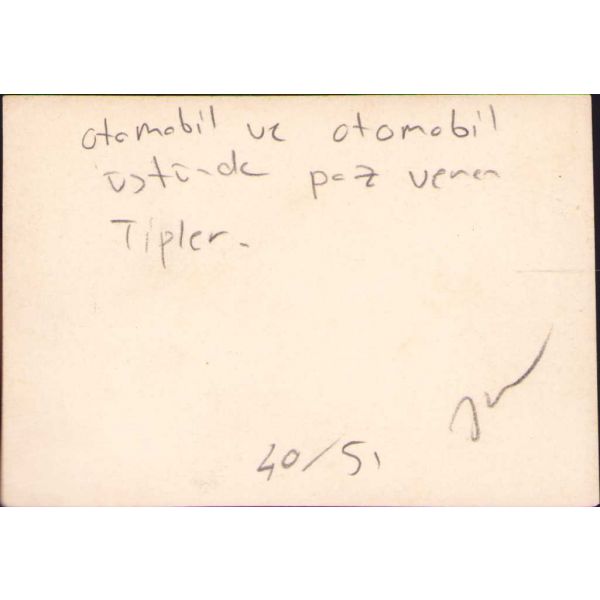 otomobil ve otomobil
üstünde poz veren
Tipler.
40/51